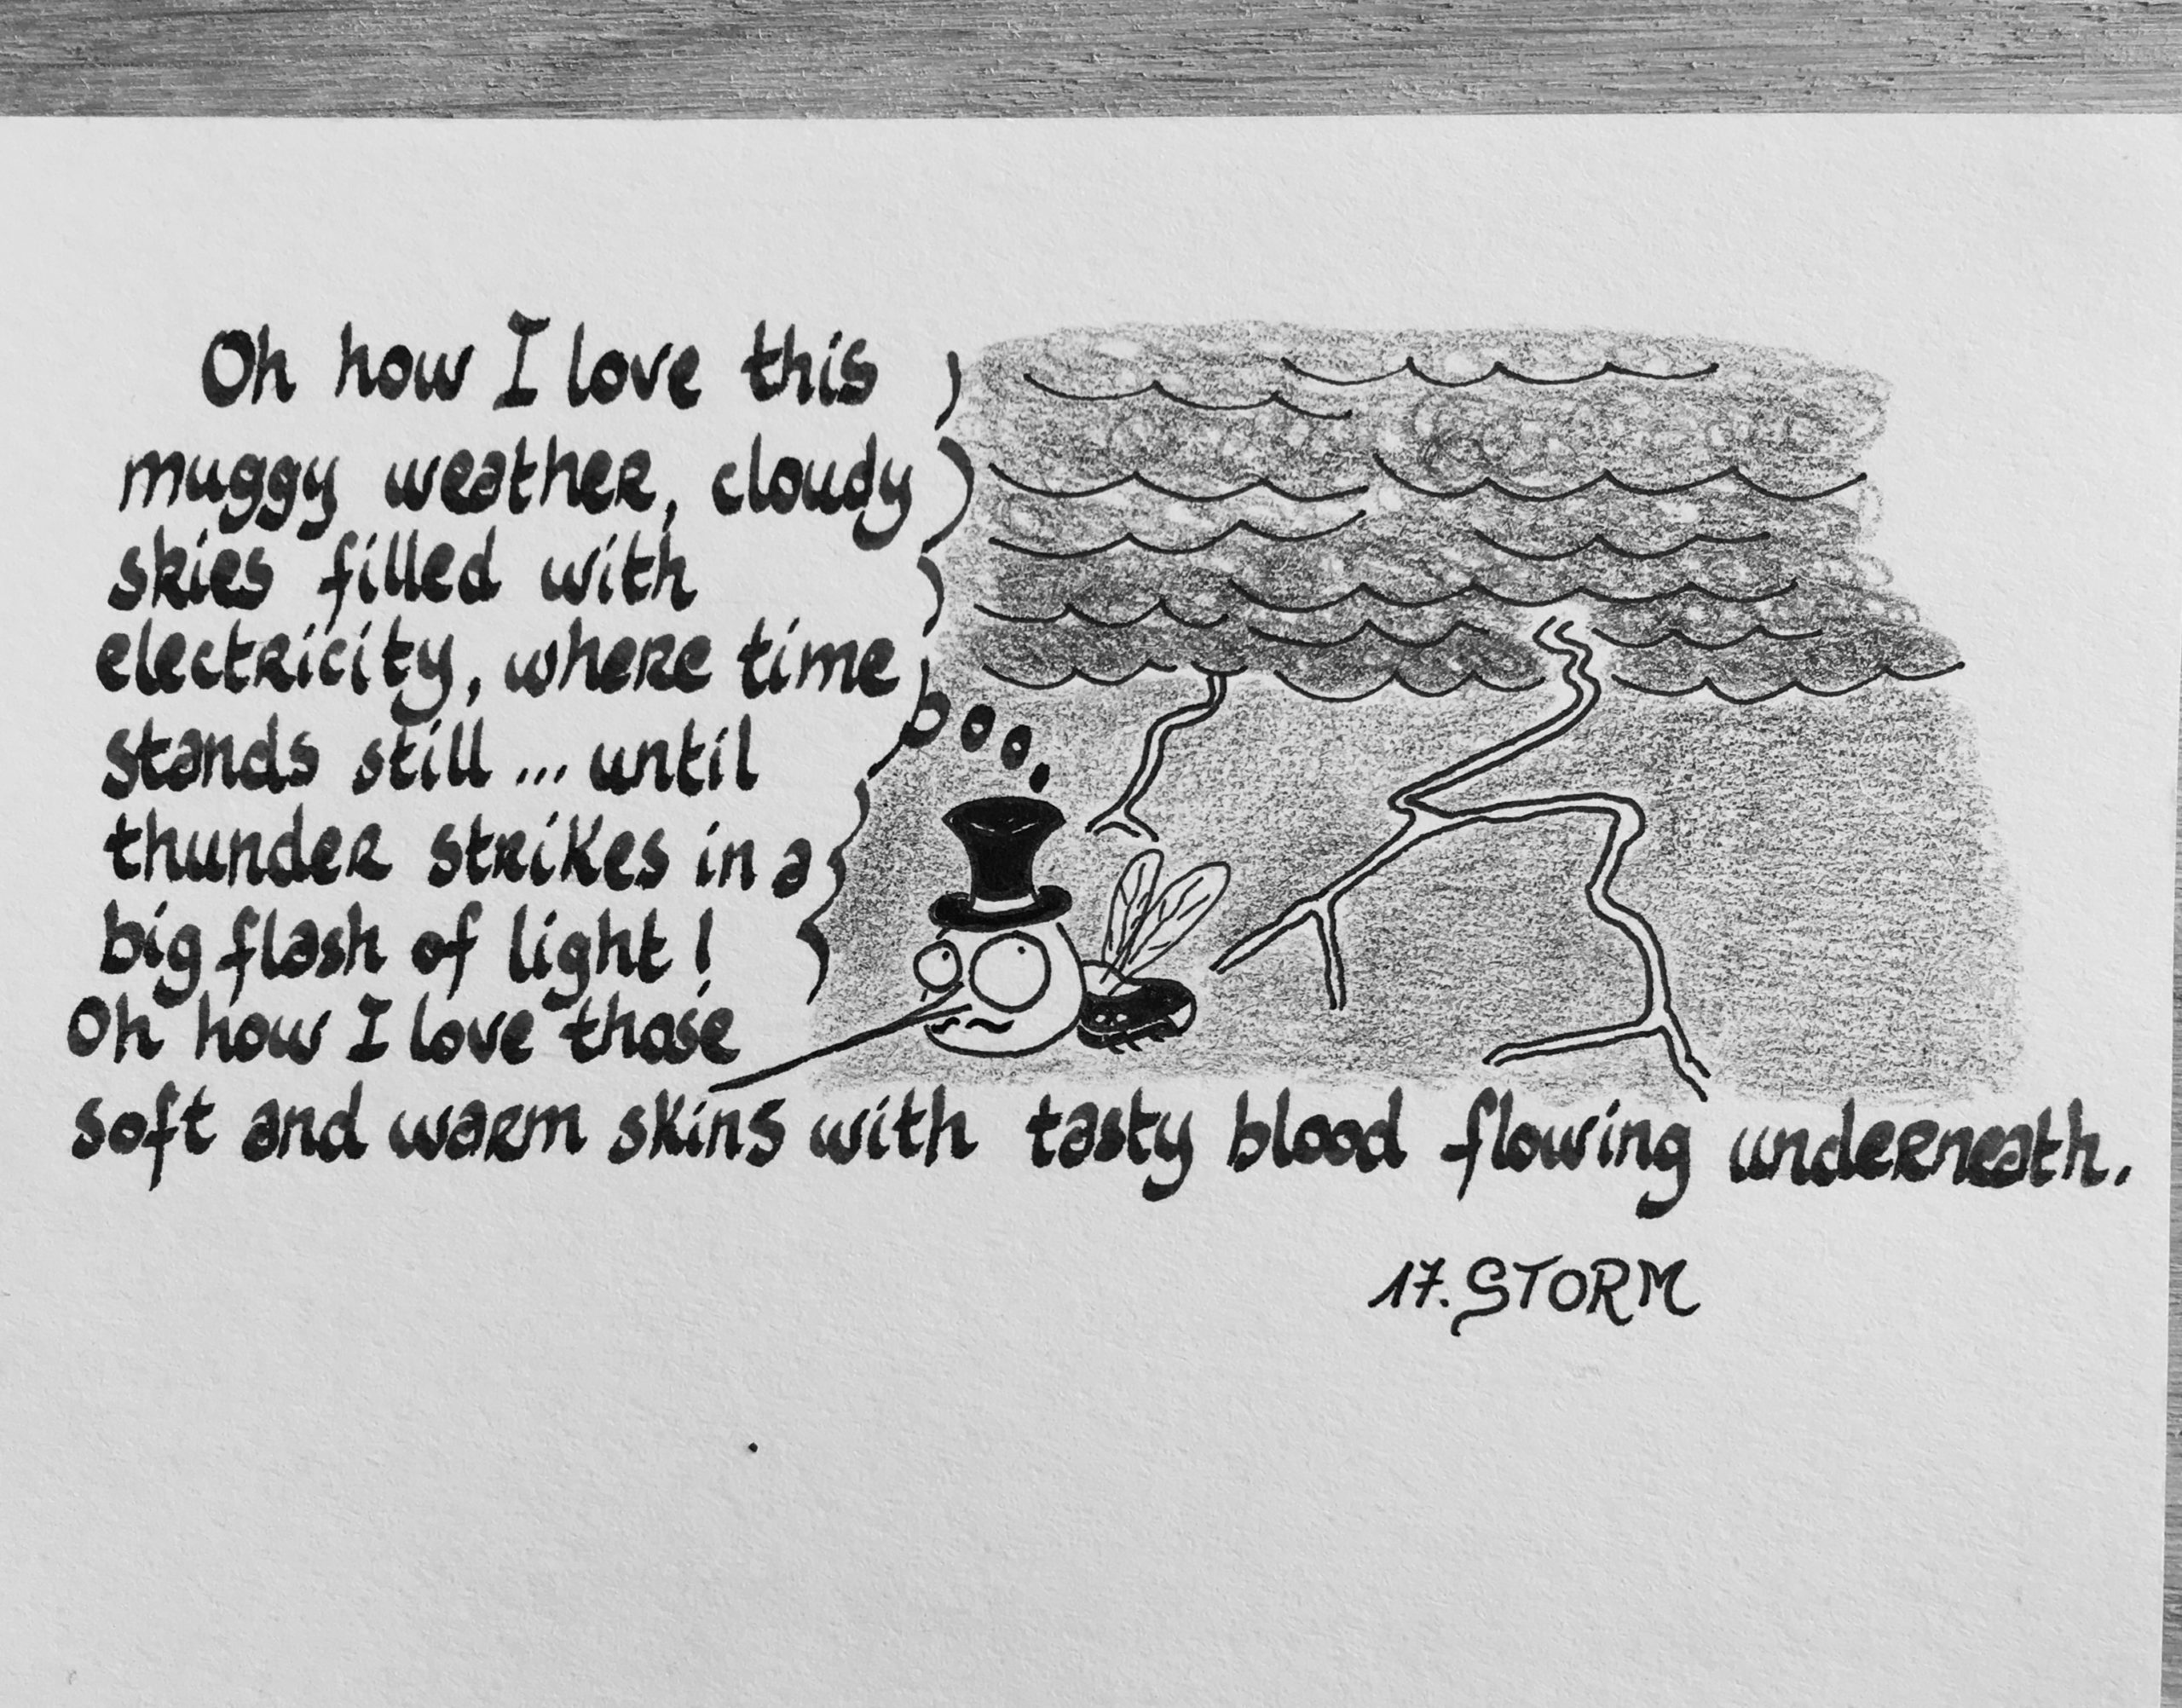 Oh how I love this
muggy weather, cloudy
skies filled with
electricity, where time
stands still ... until
thunder strikes in a
big flash of light!
Oh how I love those
soft and warm skins with tasty blood flowing underneath.
17. STORM